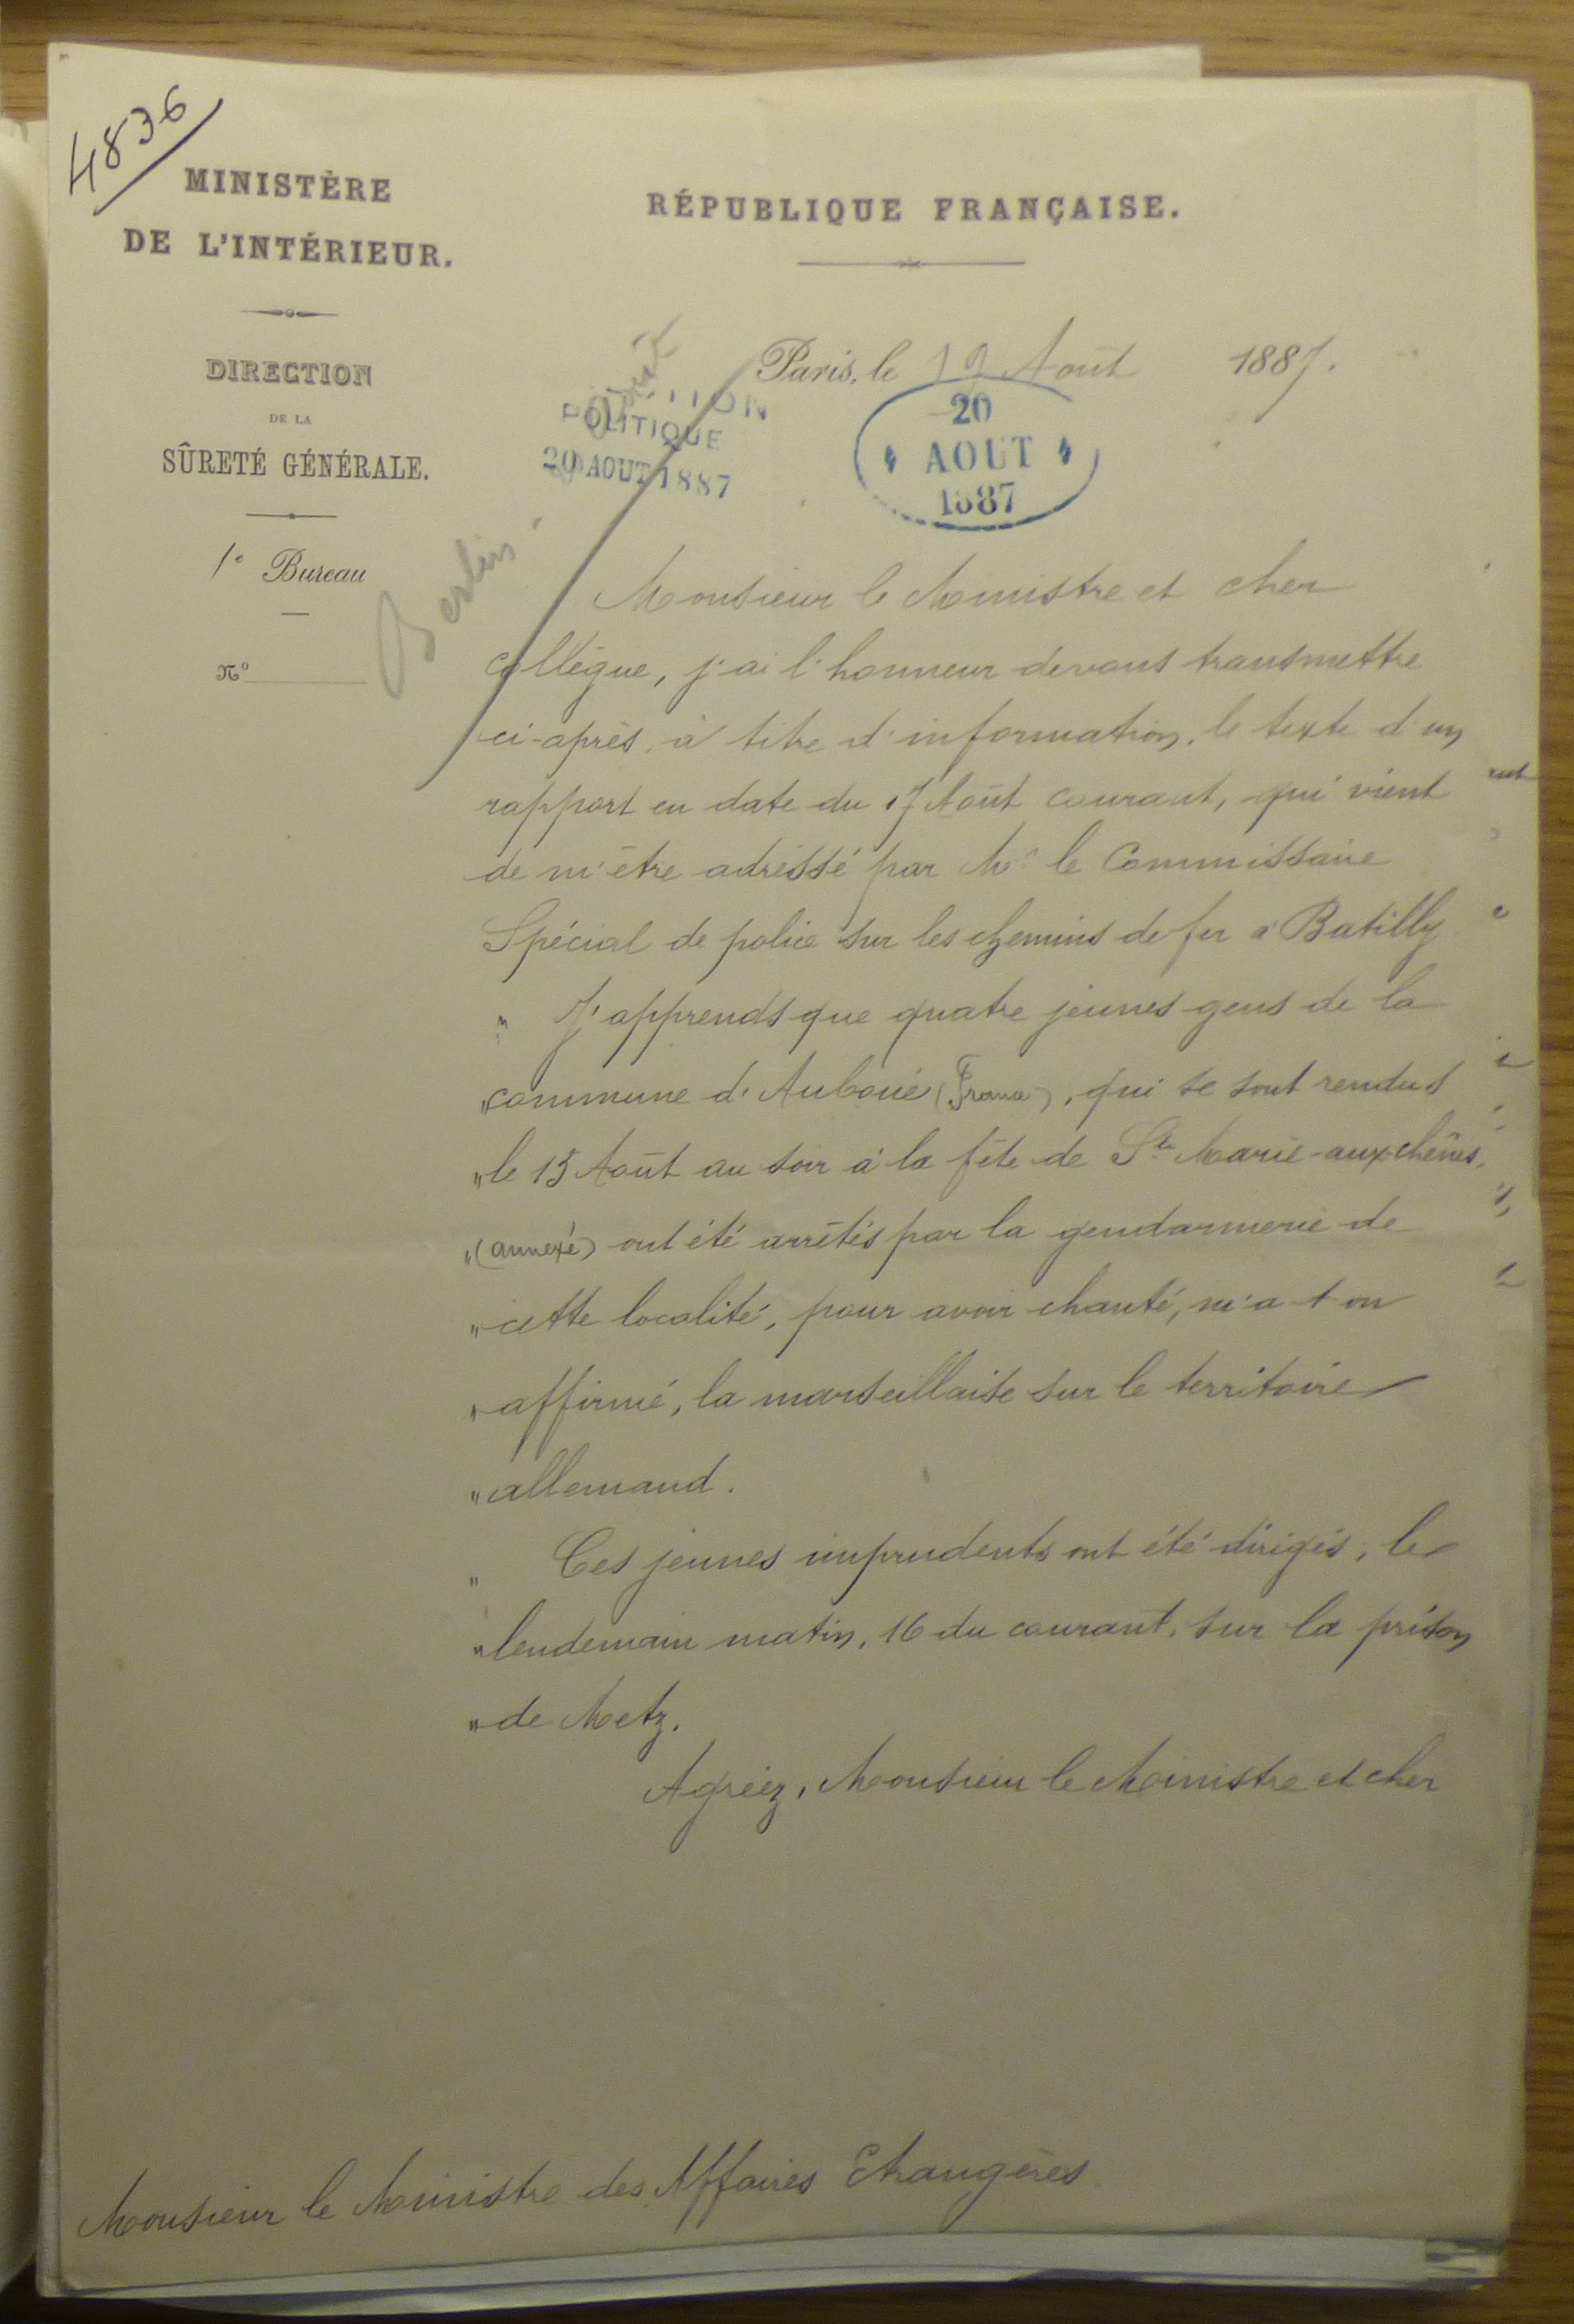 4836
MINISTÈRE
DE L'INTÉRIEUR.
DIRECTION
DE LA
SÛRETÉ GÉNÉRALE.
1e Bureau
No
RÉPUBLIQUE FRANÇAISE.
Paris, le 19 Août 1887.
POLITIQUE
20 AOUT 1887
20
AOUT
1887
Berlin
Monsieur le Ministre et cher
collègue, j'ai l'honneur de vous transmettre
ci-après, à titre d'information, le texte d'un
rapport en date du 17 Août courant, qui vient
de m'être adressé par Mr le Commissaire
Spécial de police sur les chemins de fer à Batilly
" J'apprends que quatre jeunes gens de la
"commune d'Auboué (France), qui se sont rendus
"le 15 Août au soir à la fête de Ste Marie-aux-chênes,
"(annexé) ont été arrêtés par la gendarmerie de
"cette localité, pour avoir chanté, m'a-t-on
"affirmé, la marseillaise sur le territoire
"allemand.
" Ces jeunes imprudents ont été dirigés, le
"lendemain matin, 16 du courant, sur la prison
"de Metz.
Agréez, Monsieur le Ministre et cher
Monsieur le Ministre des Affaires Etrangères